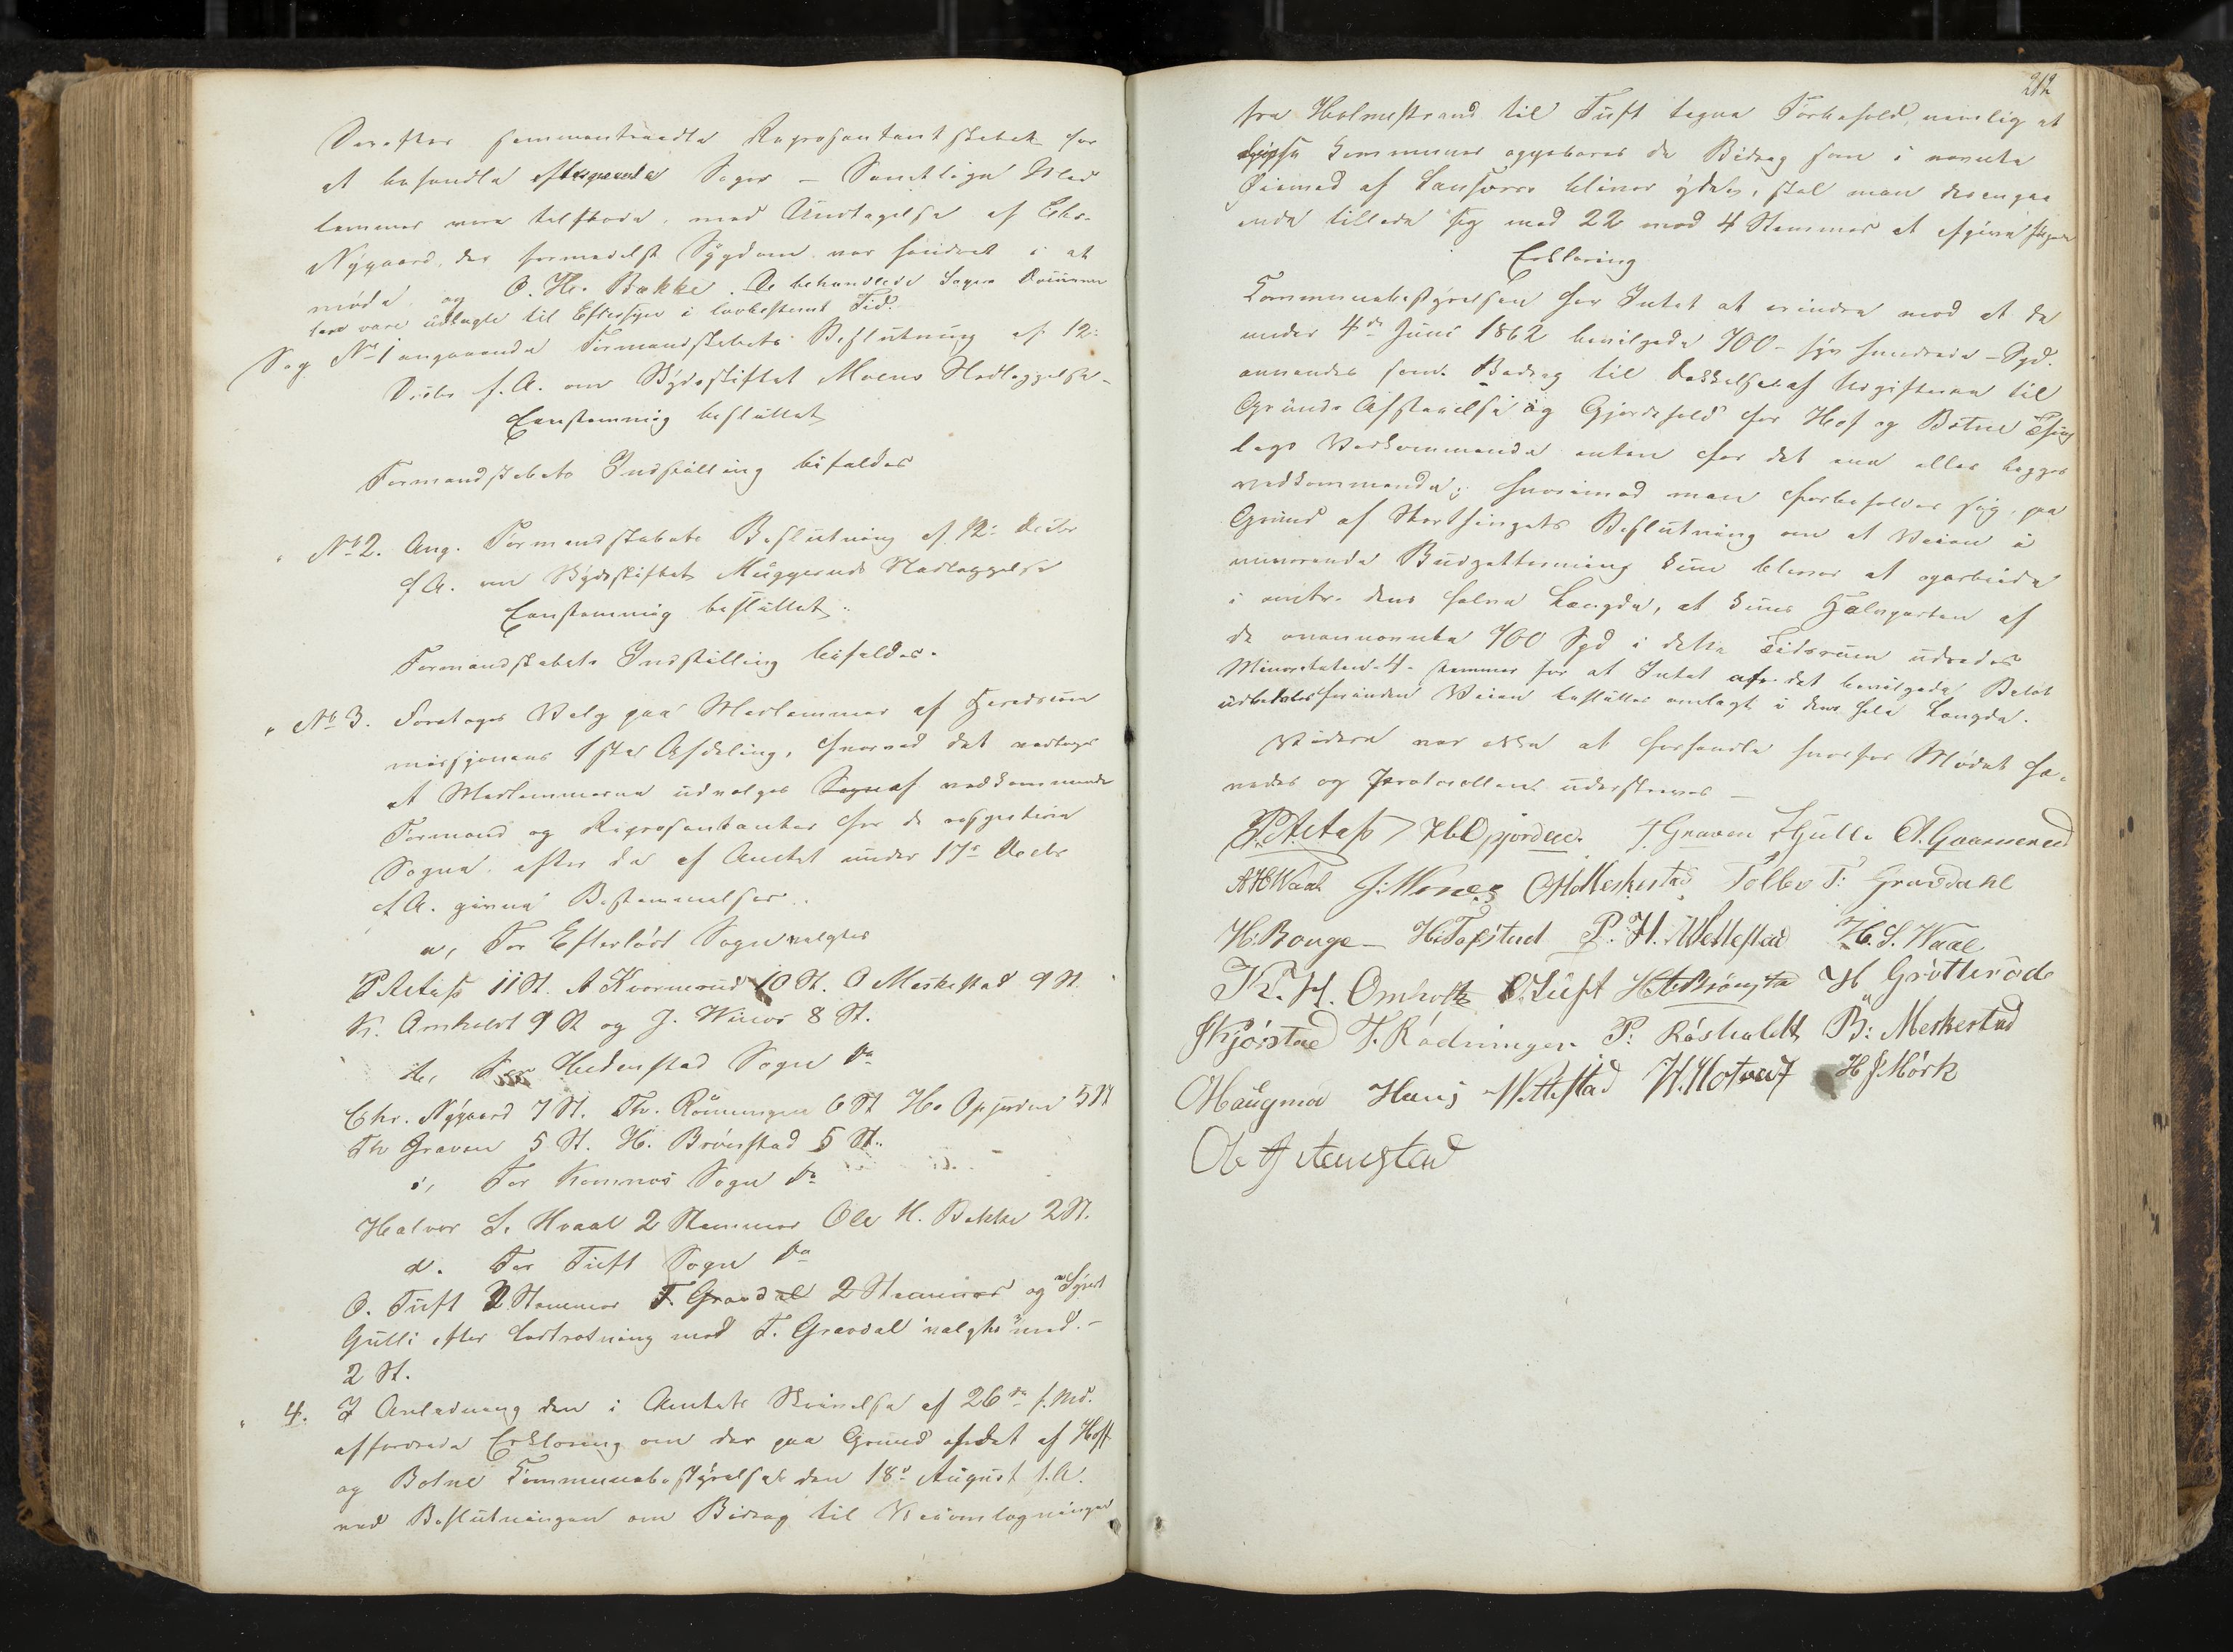 Derefter sammentraadte Repræsentantskabet for
at behandle efternævnte Sager – Samtlige Med
lemmer vare tilstæde, med Undtagelse af Chr.
Nÿgaard, der formedelst Sÿgdom var hindret i at
møde, og O. H. Bakke. De behandlede Sagers Documen
ter vare udlagte til Eftersyn i lovbestemt Tid.
Sag No 1 angaaende Formandskabets Beslutning af 12.
Decbr f. A. om Skÿdsskiftet Moens Nedlæggelse –
Eenstemmig besluttet
Formandskabets Indstilling bifaldes
" No 2. Ang. Formandskabets Beslutning af 12. Decbr
f. A. om Skÿdsskiftet Muggeruds Nedlæggelse
Eenstemmig besluttet:
Formandskabets Indstilling bifaldes.
" No 3. Foretoges Valg paa Medlemmer af Heredscom
missjonens 1ste Afdeling, hvorved det vedtoges
at Medlemmerne udvalges Sogneaf vedkommende
Formænd og Repræsentanter for de respective
Sogne, efter de af Amtet under 17de Decbr
f. A. givne Bestemmelser.
a, For Efterløst Sogn valgtes
P. Aetaß 11 St. A Kvernerud 10 St. O Meskestad 9 St.
K. Omholt 9 St og J. Wines 8 St.
b, For Hedenstad Sogn do
Chr. Nÿgaard 7 St. Th. Rønningen 6 St H. Opjorden 5 St
Th Graven 5 St. H. Brønstad 5 St.
c, For Komnæs Sogn do
Halvor S. Hvaal 2 Stemmer Ole H. Bakke 2 St.
d. For Tuft Sogn do
O. Tuft 2 Stemmer T. Gravdal 2 Stemmer og Syvert
Gulli efter Lodtrækning med T. Gravdal valgte med –
2 St.
" 4. I Anledning den i Amtets Skrivelse af 26de f. Md.
affordrede Erklæring om der paa Grund af det af Hoff
og Botne Communebestÿrelser den 18de August f. A.
ved Beslutningen om Bidrag til Veiomlægningen
212
fra Holmestrand til Tuft tagne Forbehold, nemlig at
disse Kommuner oppebærer de Bidrag som i nævnte
Øiemed af Landførere bliver ÿdet, skal man desangaa
ende tillade sig med 22 mod 4 Stemmer at afgive følgende
Erklæring
Communebestÿrelsen har Intet at erindre mod at de
under 4de Juni 1862 bevilgede 700 – sÿv hundrede – Spd.
anvendes som Bidrag til Dækkelse af Udgifterne til
Grund Afstaaelse og Gjerdehold for Hof og Botne Thing
lags Vedkommende enten for det ene eller begges
vedkommende; hvorimod man forbeholder sig, paa
Grund af Storthingets Beslutning om at Veien i
nuværende Budgettermin kun bliver at oparbeide
i omtr. dens halve Længde, at kuns Halvparten af
de ovennævnte 700 Spd i dette Tidsrum udredes
Minoriteten 4 – stemmer for at Intet af det bevilgede Beløb
udbetales forinden Veien besluttes omlagt i dens hele Længde.
Videre var ikke at forhandle hvorfor Mødet hæ=
vedes og Protocollen underskreves –
P. Aetaß H. Opjorden. T. Graven S Gulli A. Gvarnerud
A H Waal J: Wines O Meskestad Tollev T: Gravdahl
H: Bonge – H: Tofstad P. H. Wettestad H. S. Waal
K. H. Omholt O. Tuft H A Brønsta H Grøtterøde
J Kjørstad T. Rødningen P: Røsholdt B: Meskestad
O Haugmo Hans Wettestad H. Hotvet H J Mørk
Ole J Aenstad